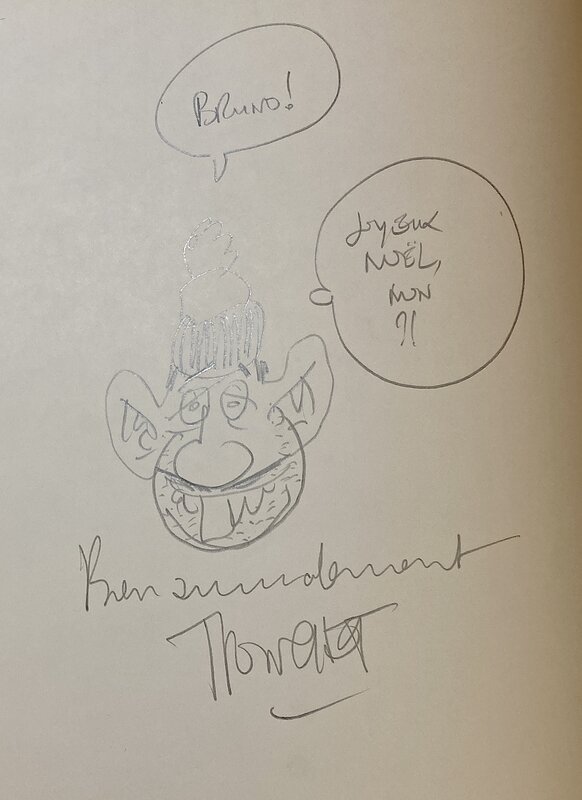 BRUNO!
Joyeux
NOËL,
NON
?!
Bien amicalement